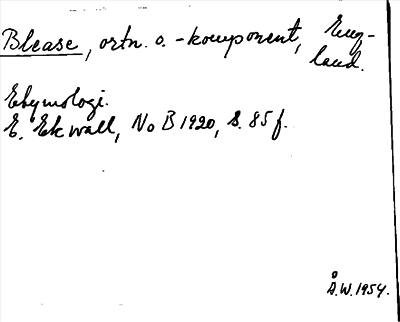 Blease, ortn. o. -komponent, Eng-
land.
Etymologi.
E. Ekwall, No B 1920, S. 85 f.
Å.W. 1954.